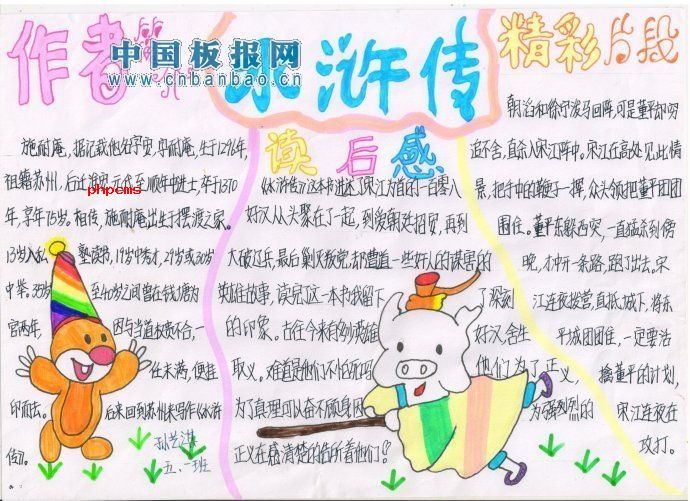 作者简介
中国板报网
www.cnbanbao.cn
水浒传
精彩片段
施耐庵，据记载他名字安，号耐庵，生于1296年，
祖籍苏州，后迁 元代至顺年中进士，卒于1370
phpcms
年，享年75岁。相传，施耐庵出生于摆渡之家。
13岁入私 塾读书，19岁中秀才，29岁或30岁
中举。35岁 至40岁之间曾在钱塘为
官两年， 因与当道权贵不合，一
任未满，便挂
印而去。 后来回到苏州来写作《水浒
传》。
孙兰淇
五、一班
读后感
《水浒传》这本书讲述了宋江为首的一百零八
好汉从头聚在了起，到受朝廷招安，再到
大破辽兵，最后剿灭叛党，却遭直一些奸人的谋害的
英雄故事，读完这一本书我留下 了深刻
的印象。古往今来的多少英雄 好汉，舍生
取义。难道是他们不怕死吗 他们为了正义，
为了真理可以奋不顾身因 为强烈的
正义在感清楚的告所着他们！
朝滔和徐宁拨马回阵，可是董平却穷
追不舍，直杀入宋江阵中。宋江在高处见此情
景，把手中的鞭子一挥，众头领把董平团团
围住。董平东躲西突，一直猛杀到傍
晚，才冲开一条路，跑了出去。宋
江连夜拔营，直抵城下，将东
平城团团住，一定要活
擒董平的计划，
宋江连夜在
攻打。